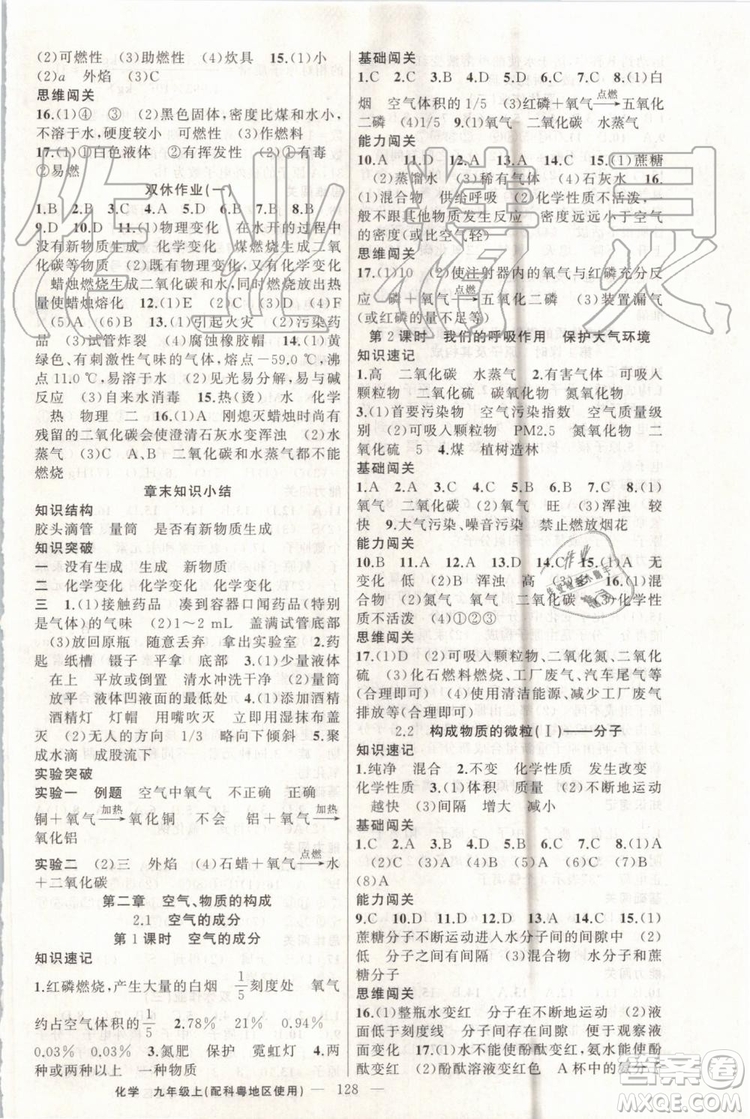 (2)可燃性　(3)助燃性　(4)炊具　15.(1)小
(2)a　外焰　(3)C
思维闯关
16.(1)④　③　(2)黑色固体,密度比煤和水小,
不溶于水,硬度较小　可燃性　(3)作燃料
17.(1)①白色液体　②有挥发性　(2)①有毒
②易燃
双休作业(一)
1.B　2.A　3.C　4.B　5.D　6.D　7.B　8.D
9.D　10.D　11.(1)物理变化　在水开的过程中
没有新物质生成　化学变化　煤燃烧生成二氧
化碳等物质　(2)既有物理变化,又有化学变化
蜡烛燃烧生成二氧化碳和水,同时燃烧放出热
量使蜡烛熔化　12.(1)E　(2)C　(3)D　(4)F
(5)A　(6)B　13.(1)引起火灾　(2)污染药
品　(3)试管炸裂　(4)腐蚀橡胶帽　14.(1)黄
绿色、有刺激性气味的气体,熔点－59.0℃,沸
点11.0℃　(2)见光易分解、与碱能发生化学
反应　(3)自来水消毒　15.热(烫)　化学
热　物理　二　16.(1)A　刚熄灭蜡烛时尚有
残留的二氧化碳会使澄清石灰水变浑浊　(2)水
蒸气　(3)C　A、B、C　二氧化碳和水蒸气都不能
燃烧
章末知识小结
知识结构
胶头滴管　量筒　是否有新物质生成
知识突破
一　没有生成　生成　新物质
二　化学变化　化学变化　物理变化
三　1.(1)接触药品　凑到容器口闻药品(特别
是气体)的气味　(2)1～2 mL　盖满试管底部
(3)放回原瓶　随意丢弃　拿出实验室　2.药
匙　纸槽　镊子　平拿　底部　3.(1)少量液体
在上　外　胶帽　清水冲洗干净　(2)量筒
放平　液体凹液面的最低处　4.(1)添加酒精
酒精灯　灯帽　用嘴吹灭　立即用湿抹布扑
盖　(2)无人的方向　略向下倾斜　5.聚
成水滴　成股流下
实验突破
实验一　例题　空气中氧气　不正确　正确
铜＋氧气 加热→ 氧化铜　不会　铝＋氧气 加热→
氧化铝
实验二　(2)三　外焰　(4)石蜡＋氧气 点燃→ 水
＋二氧化碳
第二章　空气、物质的构成
2.1　空气的成分
第1课时　空气的成分
知识速记
1.红磷燃烧,产生大量的白烟　1/5刻度处　氧气
约占空气体积的1/5　2.78%　21%　0.94%
0.03%　0.03%　3.氮肥　保护　霓虹灯　4.同
一种　多种物质
基础闯关
1.C　2.C　3.B　4.D　5.D　6.D　7.D　8.(1)白
烟　空气体积的1/5　(3)红磷＋氧气 点燃→ 五氧化
二磷　(4)1/5　9.(1)氧气　二氧化碳　水蒸气
能力闯关
10.A　11.D　12.B　13.A　14.D　15.(1)蔗糖
(2)蒸馏水　(3)稀有气体　(4)石灰水　16.
(1)混合物　供给呼吸　(2)氧气的化学性质活泼,一
般不跟其他物质发生反应　密度小于空气的
密度(或比空气轻)
思维闯关
17.(1)10　(2)使注射器内的氧气与红磷充分反
应　红磷＋氧气 点燃→ 五氧化二磷　(3)装置漏气
(或红磷的量不足等)
第2课时　我们的呼吸作用　保护大气环境
知识速记
1.高　二氧化碳　水蒸气　2.有害气体　可吸入
颗粒物　二氧化硫　二氧化氮　一氧化碳
3.(1)首要污染物　空气污染指数　空气质量级
别　(2)可吸入颗粒物　PM2.5　氮氧化物　二
氧化硫　4.二氧化硫　5.煤　植树造林
基础闯关
1.A　2.A　3.C　4.B　5.A　6.C　7.B　8.(1)
氧气　二氧化碳　(2)氧气　旺　(3)浑浊　较
快　9.大气污染、噪音污染　禁止燃放烟花
能力闯关
10.B　11.A　12.A　13.D　14.C　15.(1)A　无
变化　(2)B　浑浊　(3)　16.(1)混
合物　(2)氮气　氧气　(3)
质不活泼　(4)①②③
思维闯关
17.(1)D　(2)可吸入颗粒物、二氧化氮、二氧化
硫　(3)化石燃料燃烧、工厂废气、汽车尾气等
(合理即可)　(4)使用清洁能源、减少工厂废气
排放等(合理即可)
2.2　构成物质的微粒(Ⅰ)——分子
知识速记
1.纯净　混合　2.不变　化学性质　发生改变
化学性质　3.(1)很小　很小　(2)不断地运动
越快　(3)间隔　增大　减小
基础闯关
1.C　2.A　3.B　4.D　5.A　6.C　7.C　8.(1)A
(2)C　(3)D　(4)B　(5)A　(6)C　(7)B
(8)A
能力闯关
9.C　10.D　11.D　12.D　13.C　14.B　15.(1)
蔗糖分子不断运动进入水分子的间隙中　(2)不
断运动　间隔　小　(3)水分子　水分子和蔗
糖分子
思维闯关
16.(1)整瓶水变红　分子在不断地运动　(2)液
面低于刻度线　分子间有间隔　(3)便于观察液面
的变化　17.(1)能使酚酞变红　不能使酚酞
变红　(2)酚酞溶液变红色　A杯中的酚酞分